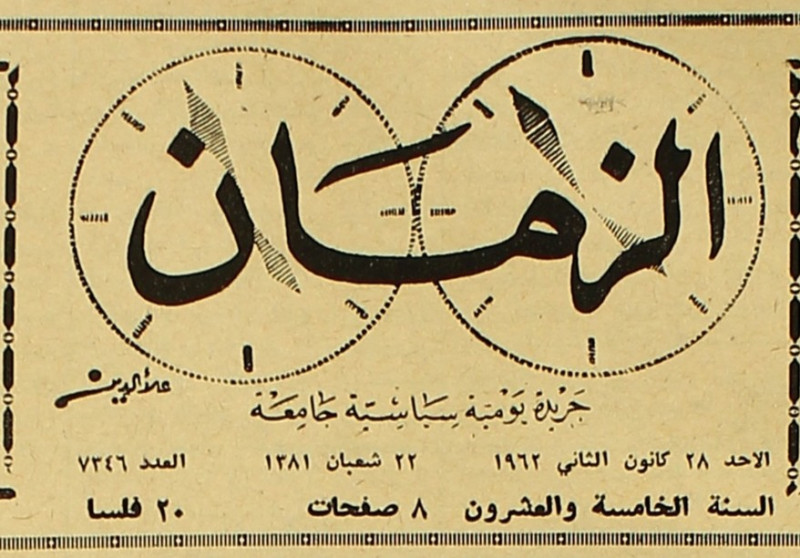 الزمان
علاءالدين
جريدة يومية سياسية جامعة
الاحد ٢٨ كانون الثاني ١٩٦٢ ٢٢ شعبان ١٣٨١ العدد ٧٣٤٦
السنة الخامسة والعشرون ٨ صفحات ٢٠ فلسا